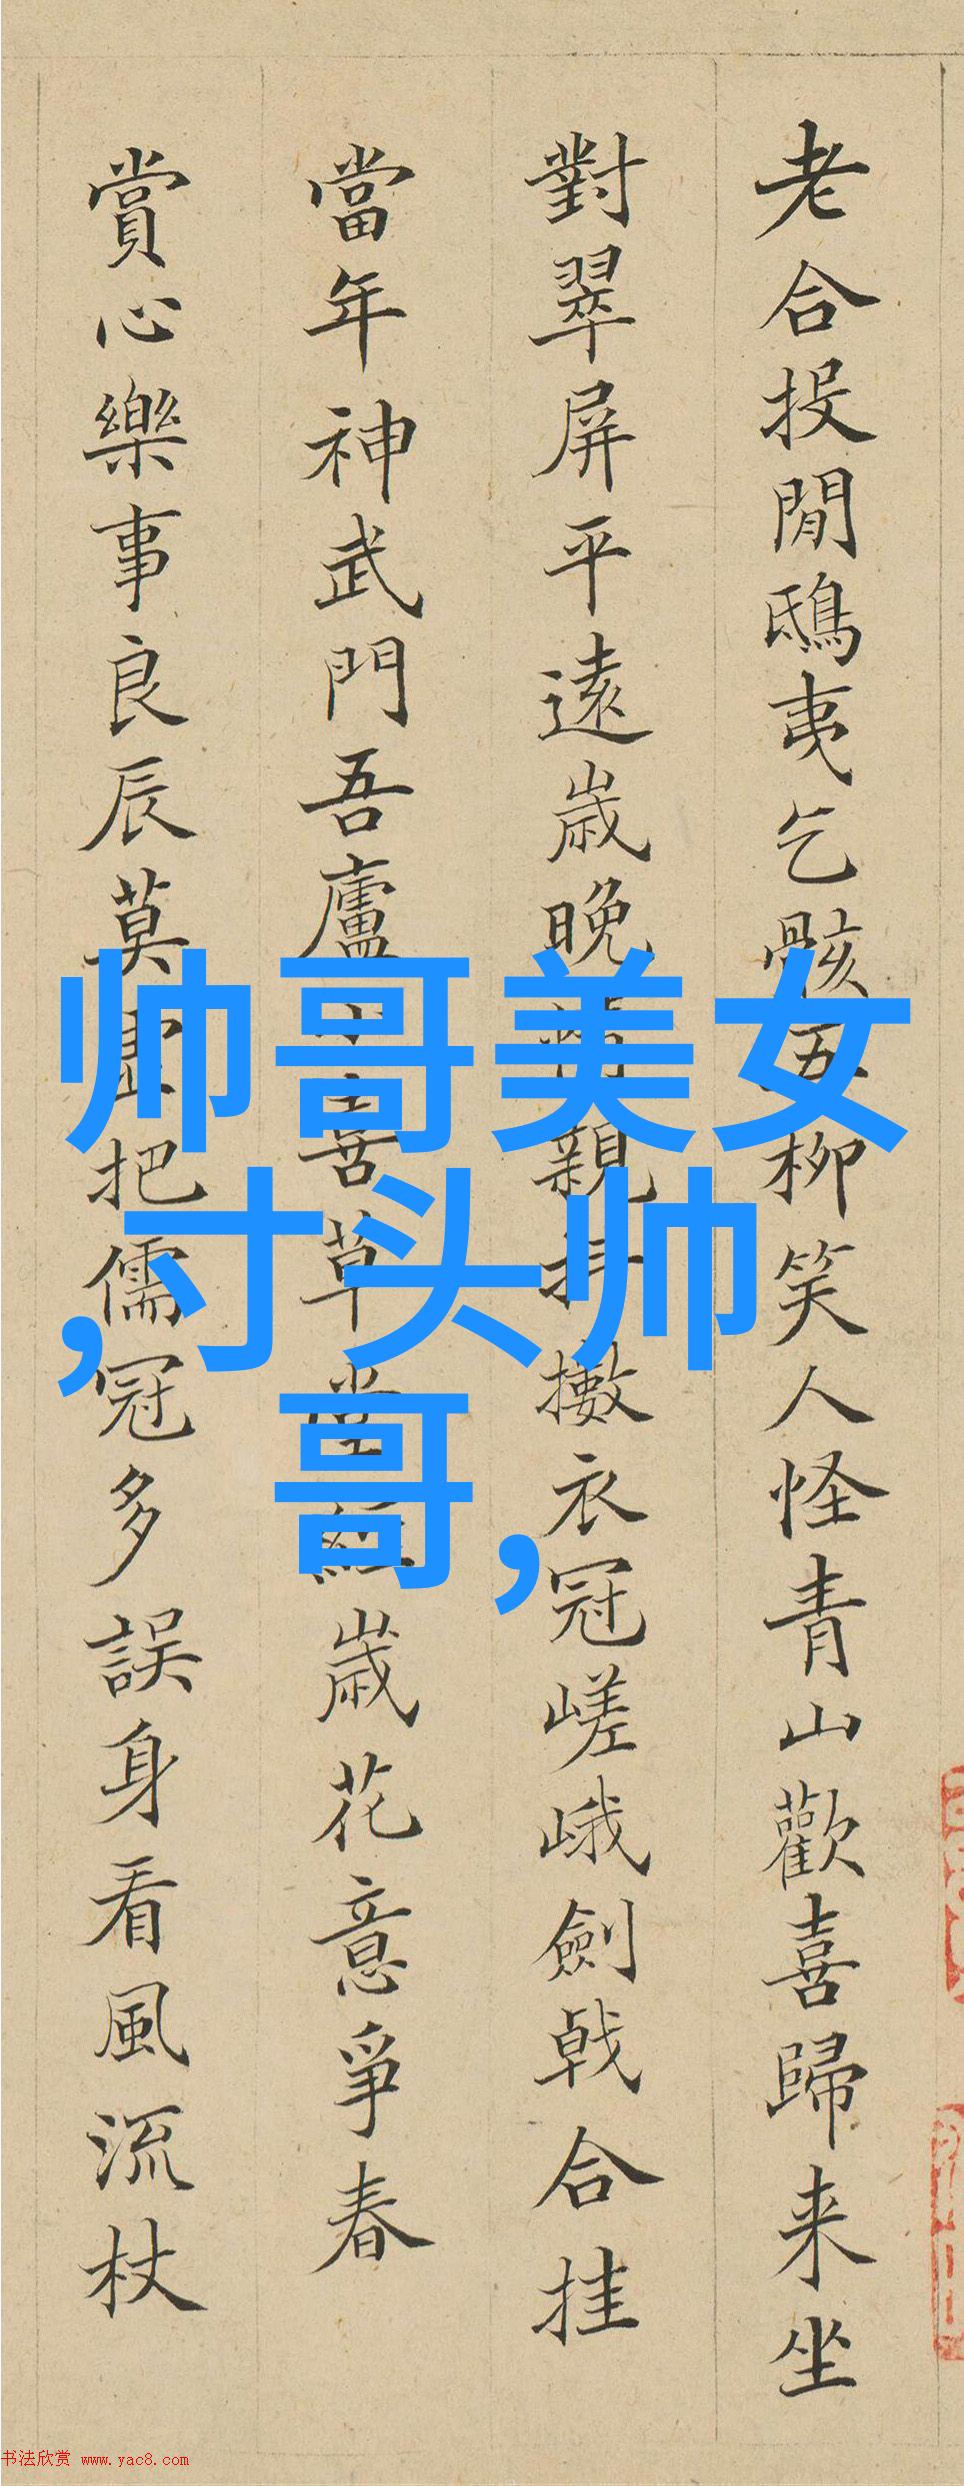 老合投閒鴟夷乞骸五柳笑人怪青山歡喜歸来坐
對翠屏平遠歲晚情親抖擻衣冠嵯峨劍戟合挂
當年神武門吾廬喜草堂經歲花意爭春
賞心樂事良辰莫虛把儒冠多誤身看風流杖
帅哥美女
,寸头帅
哥,
书法欣赏 www.yac8.com